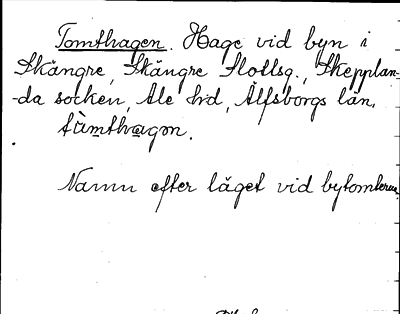 Tomthagen. Hage vid byn i
Skängre, Skängre Slottsg., Skepplan-
-da socken, Ale hd, Älfsborgs län.
tàmthagən.
Namn efter läget vid bytomterna.